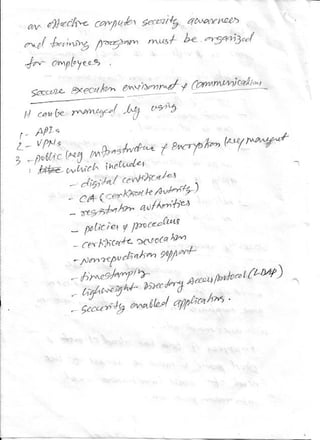 an effective computer security awareness
and training program must be organized
for employees.
Secure execution environment & Communications
It can be managed by using
1 - APIs
2 - VPNs
3 - public key infrastructure & Encryption key managent
which includes
- digital certificates
- CA (certificate Autority)
- registration authorities
- policies & procedures
- certificate revocation
- Nonrepudiation support
- timestamping
- lightweight Directory Access protocol (LDAP)
- Security enabled applications.